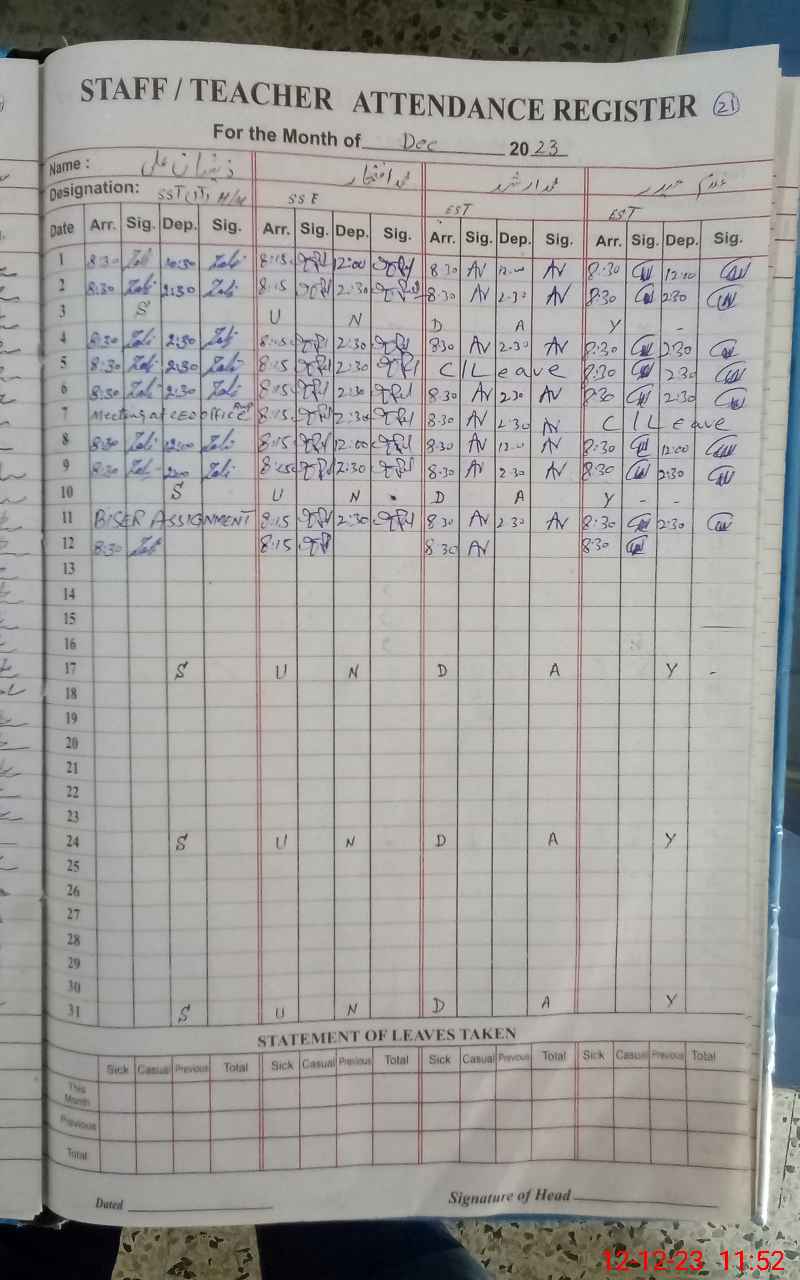 STAFF / TEACHER ATTENDANCE REGISTER 21
For the Month of Dec 2023
Name : ذیشان علی محمد افتخار محمد ارشد غلام حیدر
Designation: SST SSE EST EST
Date Arr. Sig. Dep. Sig. Arr. Sig. Dep. Sig. Arr. Sig. Dep. Sig. Arr. Sig. Dep. Sig.
1 8:30 8:15 12:00 8:30 12:00 8:30 12:00
2 8:30 2:30 8:15 2:30 8:30 2:30 8:30 2:30
3 S U N D A Y -
4 8:30 2:30 8:15 2:30 8:30 2:30 8:30 2:30
5 8:30 2:30 8:15 2:30 C/Leave 8:30 2:30
6 8:30 2:30 8:15 2:30 8:30 2:30 8:30 2:30
7 Meeting at CEO office 8:15 2:30 8:30 2:30 C/Leave
8 8:30 12:00 8:15 12:00 8:30 12:00 8:30 12:00
9 8:30 8:15 2:30 8:30 2:30 8:30 2:30
10 S U N D A Y - -
11 BISER ASSIGNMENT 8:15 2:30 8:30 2:30 8:30 2:30
12 8:30 8:15 8:30 8:30
13
14
15
16
17 S U N D A Y -
18
19
20
21
22
23
24 S U N D A Y
25
26
27
28
29
30
31 S U N D A Y
STATEMENT OF LEAVES TAKEN
Sick Casual Previous Total Sick Casual Previous Total Sick Casual Previous Total Sick Casual Previous Total
This Month
Previous
Total
Dated Signature of Head
12-12-23 11:52